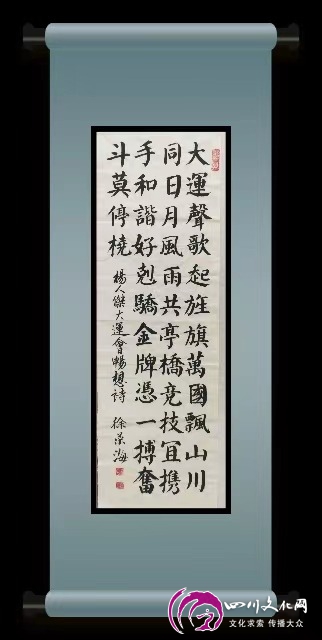 大運聲歌起旌旗萬國飄山川
同日月風雨共亭橋竞技宜携
手和諧好剋驕金牌憑一搏奮
斗莫停橈
楊人傑大運會暢想詩
徐荣海
四川文化网
文化求索 传播大众